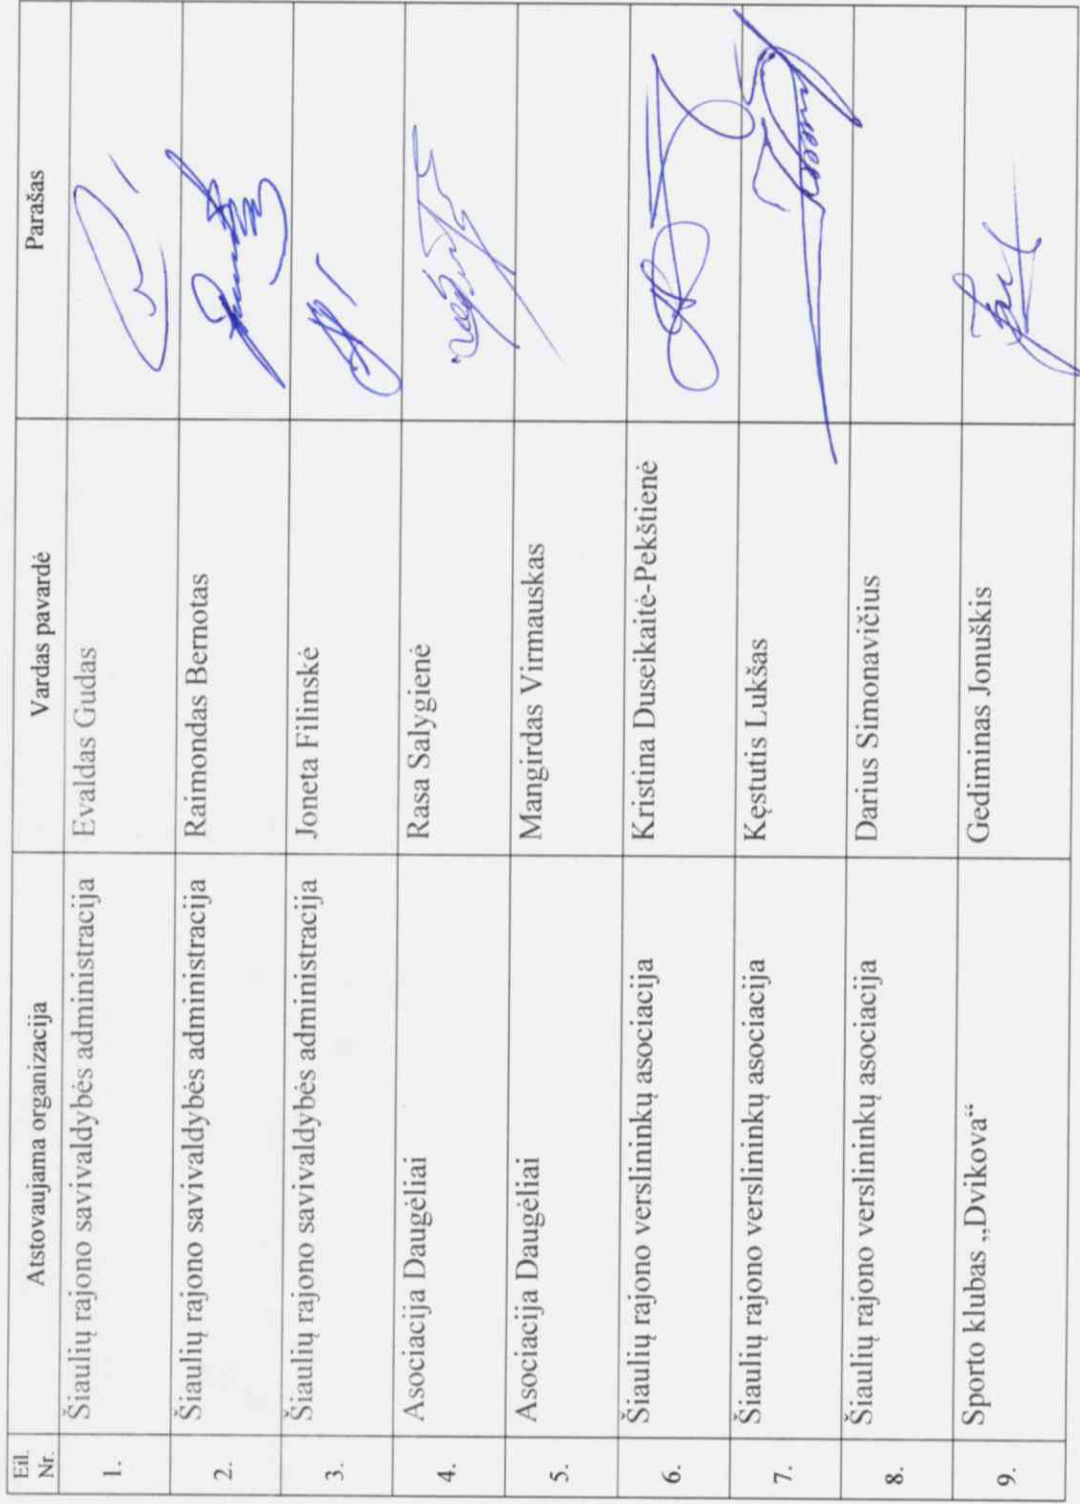 Eil. Nr. Atstovaujama organizacija Vardas pavardė Parašas
1. Šiaulių rajono savivaldybės administracija Evaldas Gudas
2. Šiaulių rajono savivaldybės administracija Raimondas Bernotas
3. Šiaulių rajono savivaldybės administracija Joneta Filinskė
4. Asociacija Daugėliai Rasa Salygienė
5. Asociacija Daugėliai Mangirdas Virmauskas
6. Šiaulių rajono verslininkų asociacija Kristina Duseikaitė-Pekštienė
7. Šiaulių rajono verslininkų asociacija Kęstutis Lukšas
8. Šiaulių rajono verslininkų asociacija Darius Simonavičius
9. Sporto klubas „Dvikova“ Gediminas Jonuškis